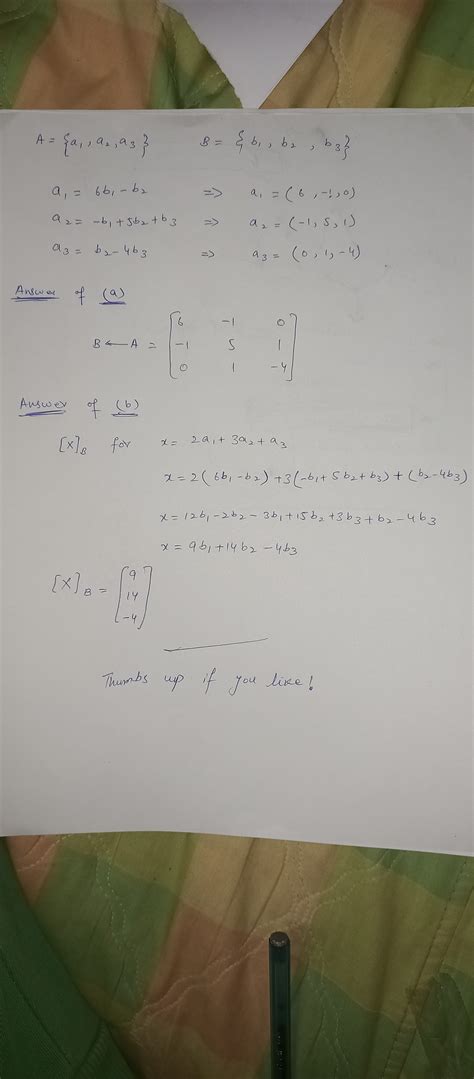 A = {a₁, a₂, a₃} B = {b₁, b₂, b₃}
a₁ = 6b₁ - b₂ => a₁ = (6, -1, 0)
a₂ = -b₁ + 5b₂ + b₃ => a₂ = (-1, 5, 1)
a₃ = b₂ - 4b₃ => a₃ = (0, 1, -4)
Answer of (a)
B ← A = [6 -1 0
-1 5 1
0 1 -4]
Answer of (b)
[X]_B for x = 2a₁ + 3a₂ + a₃
x = 2(6b₁ - b₂) + 3(-b₁ + 5b₂ + b₃) + (b₂ - 4b₃)
x = 12b₁ - 2b₂ - 3b₁ + 15b₂ + 3b₃ + b₂ - 4b₃
x = 9b₁ + 14b₂ - 4b₃
[X]_B = [9
14
-4]
Thumbs up if you like!